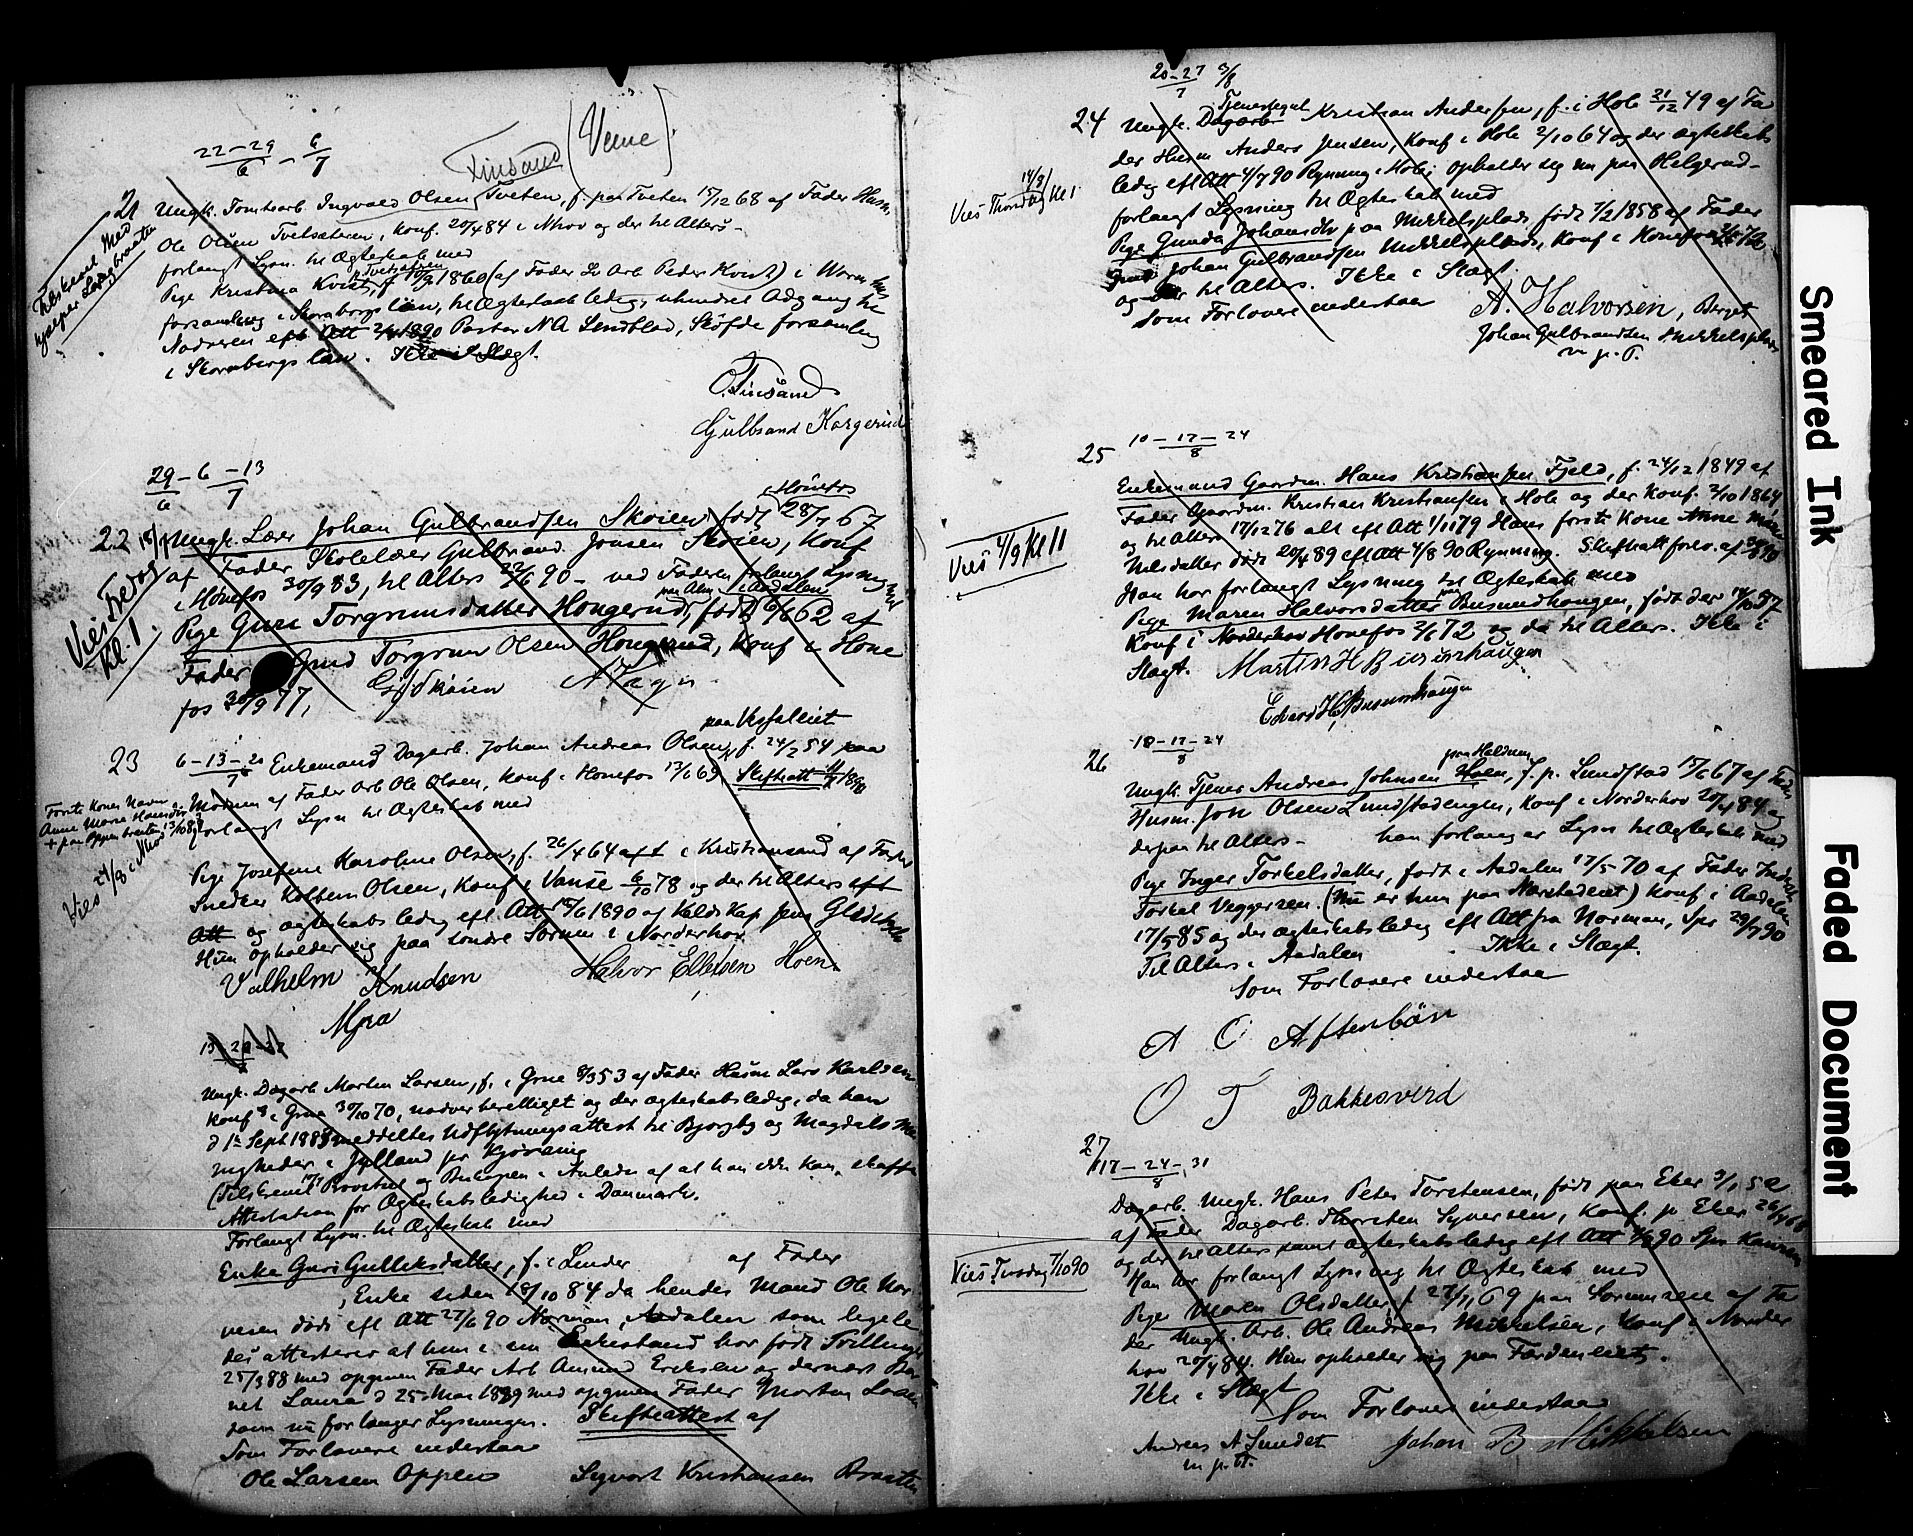 22-29/6 - 6/7
Finsand (Veme)
21 Ungk. Tomtearb. Ingvald Olsen Tveten, f. paa Tveten 15/12 68 af Fader Husm.
Ole Olsen Tvetsæteren, Konf. 20/4 84 i Nhov og der til Alters -
forlangt Lysn. til Ægteskab med
Pige Kristina Kvist, f. 10/9 1860 (af Fader Arb Peder Kvist) i
forsamling i Skarabergs län, til Ægteskab ledig, uhindret Adgang til
Nadveren eft Att 1890 Pastor N A Lindblad, Sköfde forsamling
i Skarabergs län. Ikke i Slægt.
Tilskrevet Med
O. Finsand
Gulbrand Kargerud
29/6 - 6 - 13/7
Hønefos
22 Ungk. Lærer Johan Gulbrandsen Skoien, født 28/7 67
af Fader Skolelærer Gulbrand Jonsen Skoien, Konf
i Hønefos 30/9 83, til Alters 22/6 90 - ved Faderen forlangt Lysning
med
i Aadalen
Pige Guri Torgrimsdatter Hongerud, født 9/6 62 af
Fader Gmd Torgrim Olsen Hongerud, Konf i Hone
fos 30/9 77,
Vies Fredag
Kl. 1.
G. J. Skoien
paa Vesfalliet
23 6-13-20/7 Enkemand Dagarb. Johan Andreas Olsen, f. 24/2 54 paa
Modum af Fader Arb Ole Olsen, Konf i Honefos 13/6 69, Skifteatt 1890
forlangt Lysn til Ægteskab med
Første Kones Navn
Anne Marie
+ paa Oppenbraaten 13/10 89
Vies 24/8 i Nhov
Pige Josefine Karoline Olsen, f. 26/4 64 i Kristiansand af Fader
Snedker Kolben Olsen, Konf i Vanse 6/10 78 og der til Alters eft
Att og ægteskabs ledig efl Att 15/6 1890 af
Hun opholder sig paa søndre Sørum i Norderhov
Valhelm Knudsen Halvor Ellefsen Hoen
Mora
13-20-27
Ungk. Dagarb Morten Larsen, f. i Grue 8/3 53 af Fader Husm Lars Karlsen
Konf i Grue 30/10 70, nadverberettiget og der ægteskabsledig, da han
d 1ste Sept 1888 meddeltes Udflytningsattest til Bjergby og Magdals Me
nigheder i Jylland pr Hjørring
(Tilskrevet Provsten og Biskopen i Anledn af at han ikke kan skaffe
Attestation for Ægteskabsledighed i Danmark.
Forlangt Lysn. til Ægteskab med
Enke Guri Gulliksdatter, f. i Lunder af Fader
, Enke siden 18/10 84 da hendes Mand Ole Nar
vesen døde efl Att 27/6 90 Norman, Aadalen som ligele
des attesterer at hun i sin Enkestand har født Tvillinger
25/3 88 med opgiven Fader Arb Amund Eriksen og dernæst Bar
net Laura d 25 Mai 1889 med opgiven Fader Morten Larsen
som nu forlanger Lysningen. Skifteattest af
Som Forlovere undertsaa
Ole Larsen Oppen Syvert Kristiansen Braaten
20-27/7 3/8
24 Ungk. Dagarb. Tjenestegut Kristian Andersen, f. i Hole 21/12 49 af Fa
der Husm Anders Jensen, Konf i Hole 2/10 64 og der ægteskabs
ledig efl Att 4/7 90 Rynning i Hole; opholder sig nu paa Helgerud -
forlangt Lysning til Ægteskab med
Pige Gunda Johansdtr paa Mikkelsplads født 7/2 1858 af Fader
Johan Gulbrandsen Mikkelsplads, Konf i Honefos 72
og der til Alters. Ikke i Slægt.
Som Forlovere undertsaa
Vies Thorsdag 14/8 Kl 1
A. Halvorsen, Berget
Johan Gulbrandsen Mikkelsplads
m p. P.
10-17-24/8
25 Enkemand Gaardm. Hans Kristiansen Fjeld, f. 24/12 1849 af
Fader Gaardm. Kristian Kristiansen i Hole og der Konf. 2/10 1864
og til Alters 17/12 76 alt efl Att 1/11 79 Hans første Kone Anne Marie
Nilsdatter døde 20/4 89 efl Att 4/8 90 Rynning. Skifteatt forev. af
Han har forlangt Lysning til Ægteskab med
Pige Maren Halvorsdatter paa Busundhaugen, født der 14/10 57
Konf i Norderhov Honefos 2/6 72 og da til Alters. Ikke i
Slægt.
Vies 4/9 Kl 11
Martin H Busunhaugen
Edvard H. Busunshaugn
10-17-24/8
paa Haldrum
26 Ungk. Tjener Andreas Johnsen Hoen, f. p. Lundstad 15/6 67 af Fader
Husm. Joh Olsen Lundstadengen, Konf i Norderhov 20/4 84 og
derpaa til Alters - han forlanger Lysn til Ægteskab med
Pige Inger Torkelsdatter, født i Aadalen 17/5 70 af Fader Inderst
Torkel Veggersen. (Nu er hun paa Narstadeiet) Konf i Aadalen
17/5 85 og der ægteskabsledig efl Att fra Norman, Spr 29/7 90
Til Alters i Aadalen Ikke i Slægt.
Som Forlovere undertsaa
A O Aftenbøn
O T Bakkesverd
27 17-24-31/8
Dagarb. Ungk. Hans Peter Torstensen, født paa Eker 3/1 52
af Fader Dagarb. Thorsten Syversen, Konf. p Eker 26/4 68
og der til Alters samt ægteskabsledig efl Att 90 Spr
Han har forlangt Lysning til Ægteskab med
Pige Maren Olsdatter, f. 27/11 69 paa Sørumseie af Fa
der Ungk. Arb. Ole Andreas Mikkelsen, Konf i Norder
hov 20/4 84. Hun opholder sig paa Fardeneiet.
Ikke i Slægt
Vies Tirsdag 7/10 90
Som Forlover undertsaa
Andreas A Lundet Johan B Mikkelsen
m. p. P.
Smeared Ink
Faded Document